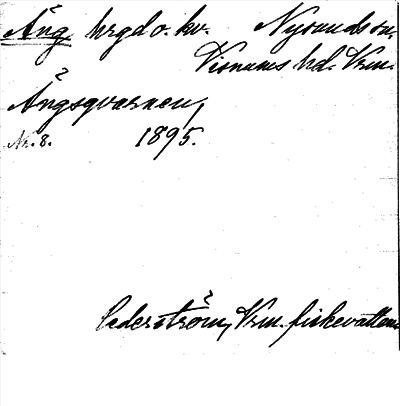 Äng hrgd o. kv. Nysunds sn.
Visnums hd. Vrm.
Ängsqvarnen,
Nr. 8. 1895.
Cederström, Vrm. fiskevatten